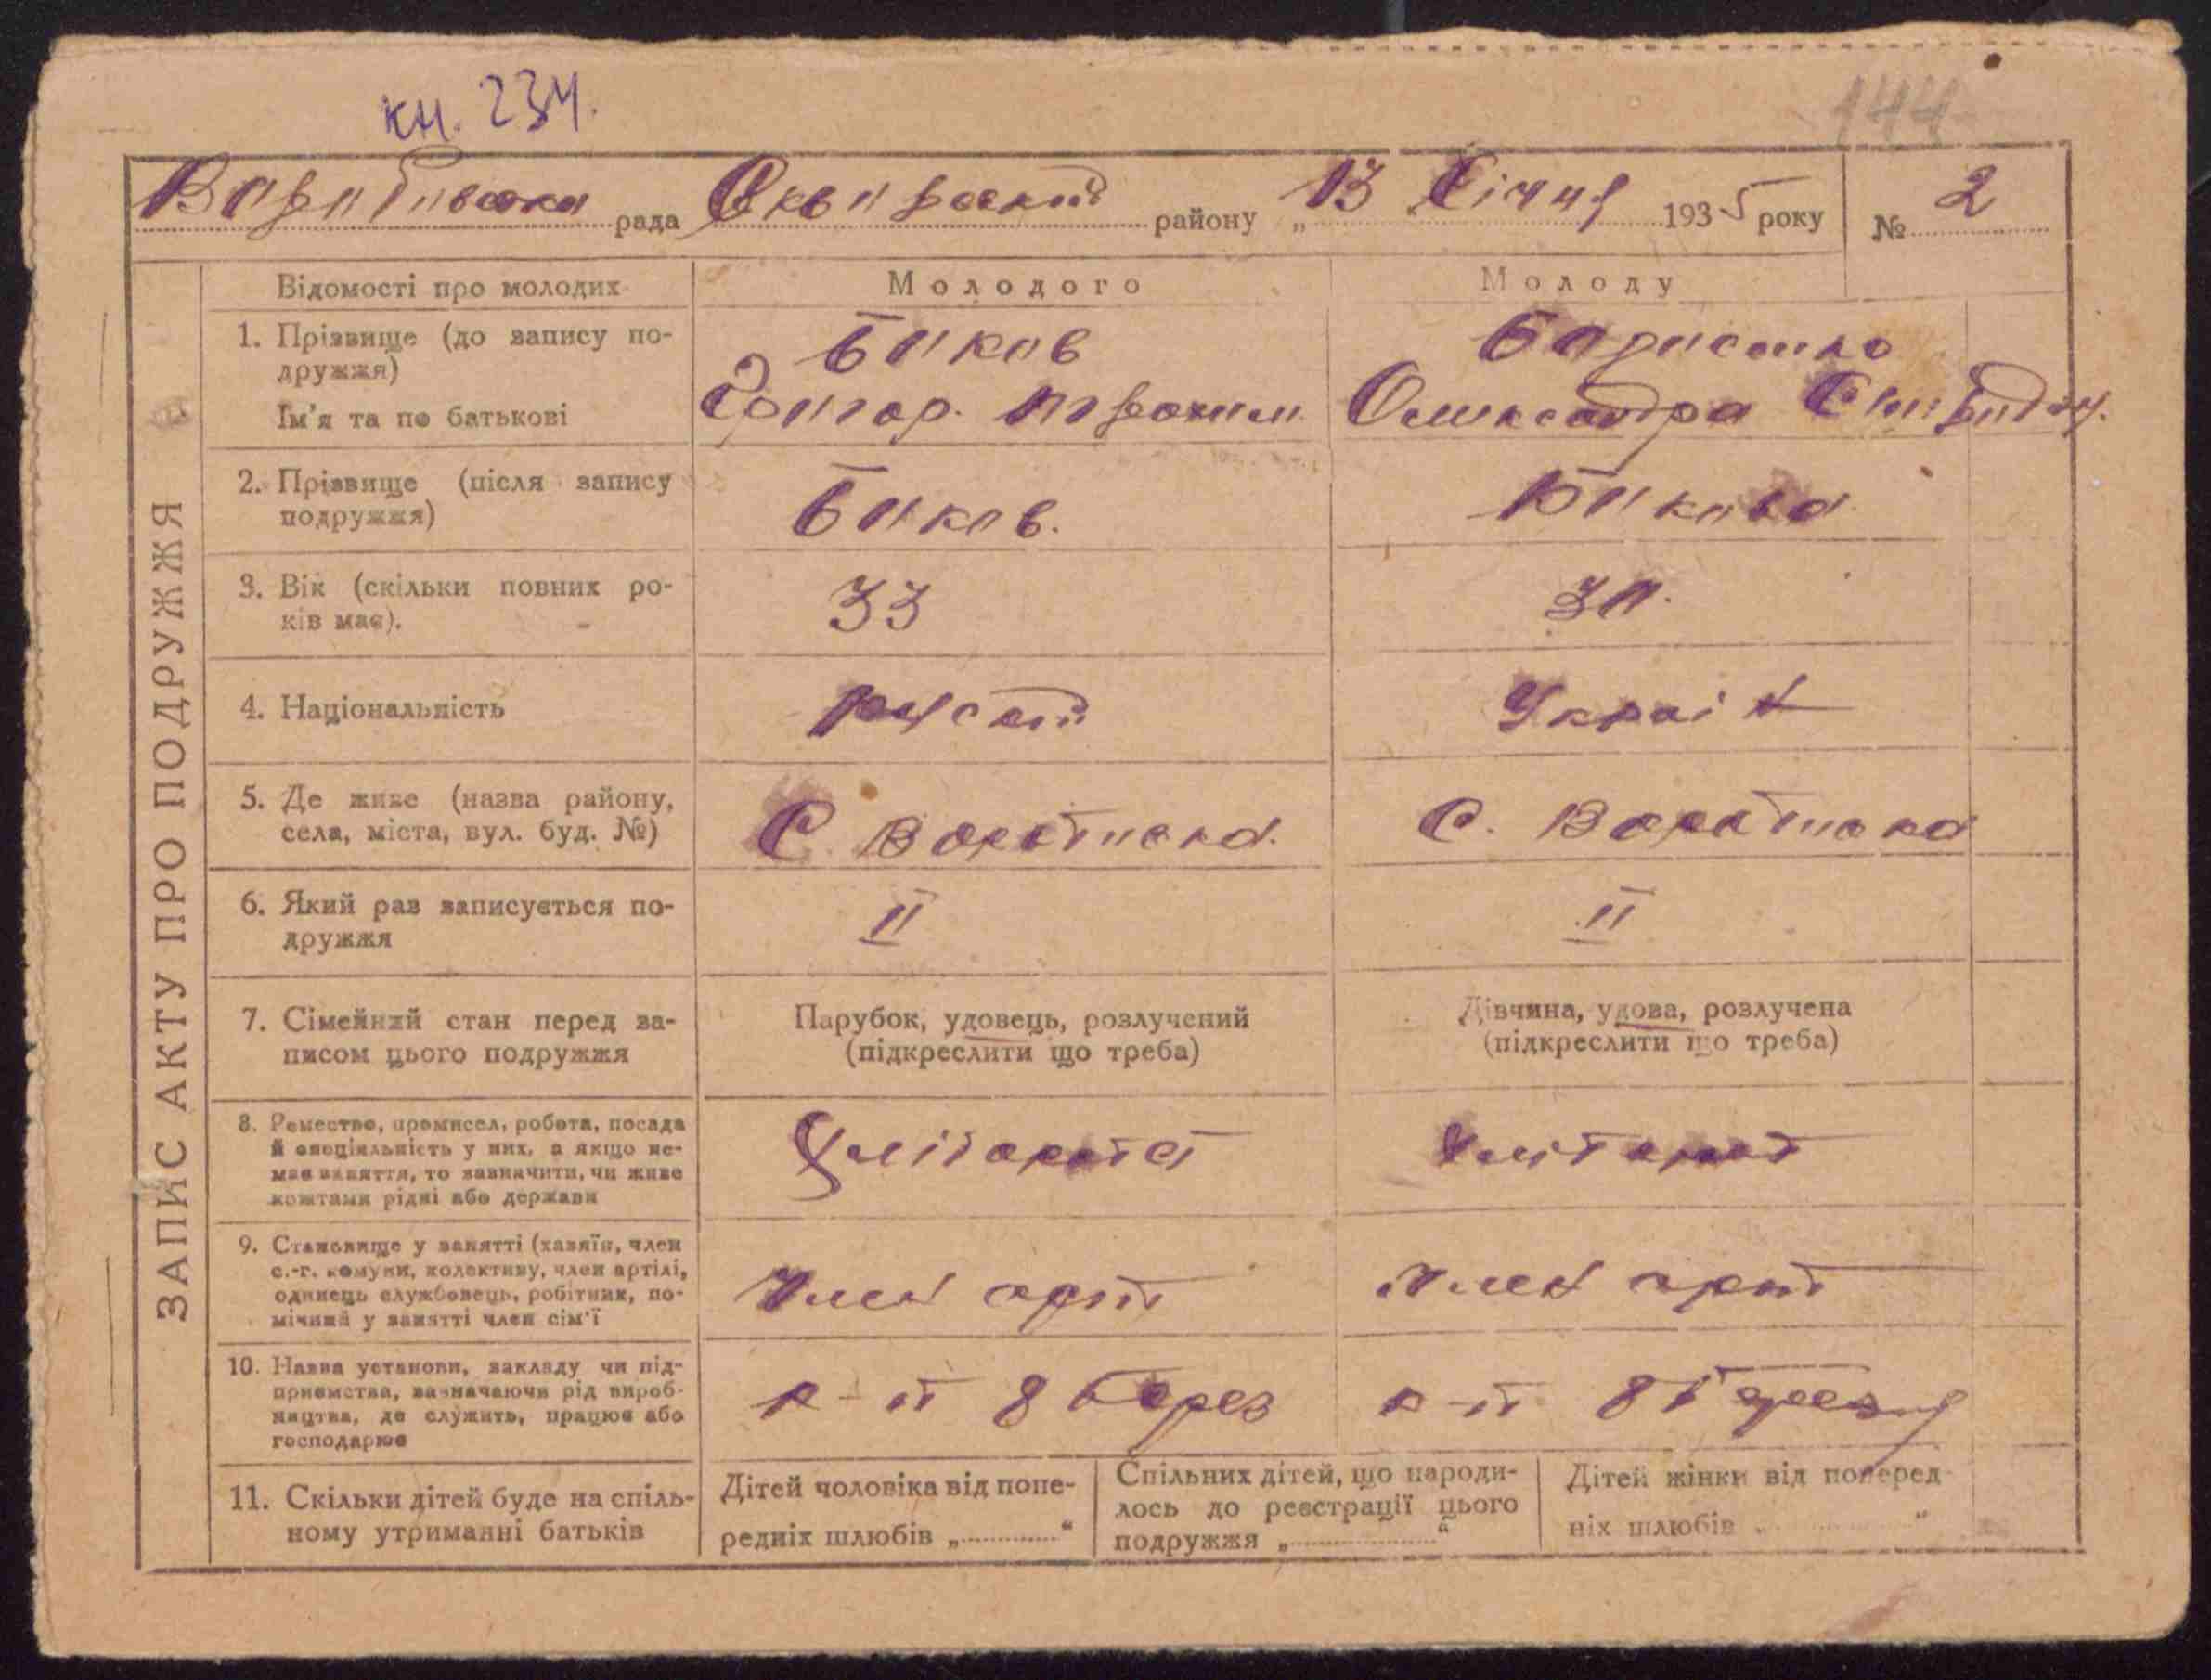 кн. 234.
144
рада Сквирський району „13 Січня 1935 року № 2
ЗАПИС АКТУ ПРО ПОДРУЖЖЯ
Відомості про молодих Молодого Молоду
1. Прізвище (до запису по-
дружжя)
Биков
Ім'я та по батькові
Григор. Олександра
2. Прізвище (після запису
подружжя)
Биков. Бикова
3. Вік (скільки повних ро-
ків має).
33 30.
4. Національність
5. Де живе (назва району,
села, міста, вул. буд. №)
С. С.
6. Який раз записується по-
дружжя
II II
7. Сімейний стан перед за-
писом цього подружжя
Парубок, удовець, розлучений
(підкреслити що треба)
Дівчина, удова, розлучена
(підкреслити що треба)
8. Ремество, промисел, робота, посада
й спеціяльність у них, а якщо не-
має заняття, то зазначити, чи живе
коштами рідні або держави
9. Становище у занятті (хазяїн, член
с.-г. комуни, колективу, член артілі,
одинець службовець, робітник, по-
мічний у занятті член сім'ї
Член арт Член арт
10. Назва установи, закладу чи під-
приємства, зазначаючи рід вироб-
ництва, де служить, працює або
господарює
к-п 8 Берез к-п 8 Березня
11. Скільки дітей буде на спіль-
ному утриманні батьків
Дітей чоловіка від попе-
редніх шлюбів „ “
Спільних дітей, що народи-
лось до реєстрації цього
подружжя „ “
Дітей жінки від поперед-
ніх шлюбів „ “